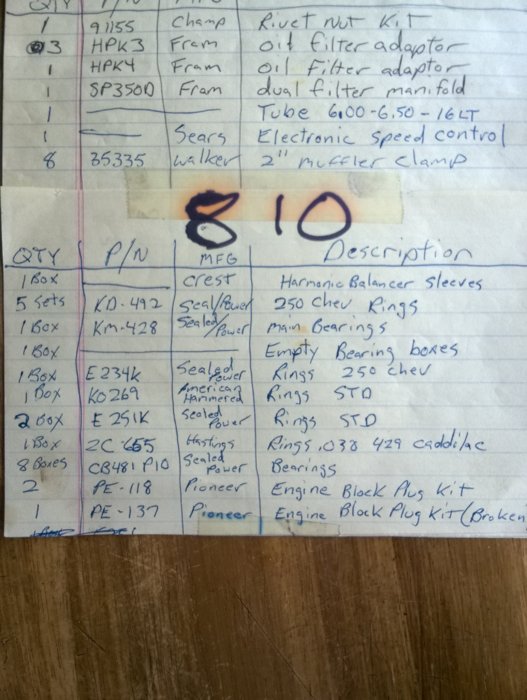 QTY P/N MFG
1 91155 Champ Rivet Nut Kit
3 HPK3 Fram oil filter adaptor
1 HPK4 Fram oil Filter adaptor
1 SP350D Fram dual filter manifold
1 Tube 6.00-6.50-16LT
1 Sears Electronic speed control
8 35335 Walker 2" muffler clamp
810
QTY P/N MFG Description
1 Box Crest Harmonic Balancer Sleeves
5 sets KD-492 Seal/Power 250 Chev Rings
1 Box Km-428 Sealed/Power main Bearings
1 Box Empty Bearing boxes
1 Box E234K Sealed Power Rings 250 chev
1 Box KO269 American Hammered Rings STD
2 Box E251K Sealed Power Rings STD
1 Box 2C 655 Hastings Rings .038 429 caddilac
8 Boxes CB481 P10 Sealed Power Bearings
2 PE-118 Pioneer Engine Block Plug Kit
1 PE-137 Pioneer Engine Block Plug Kit (Broken